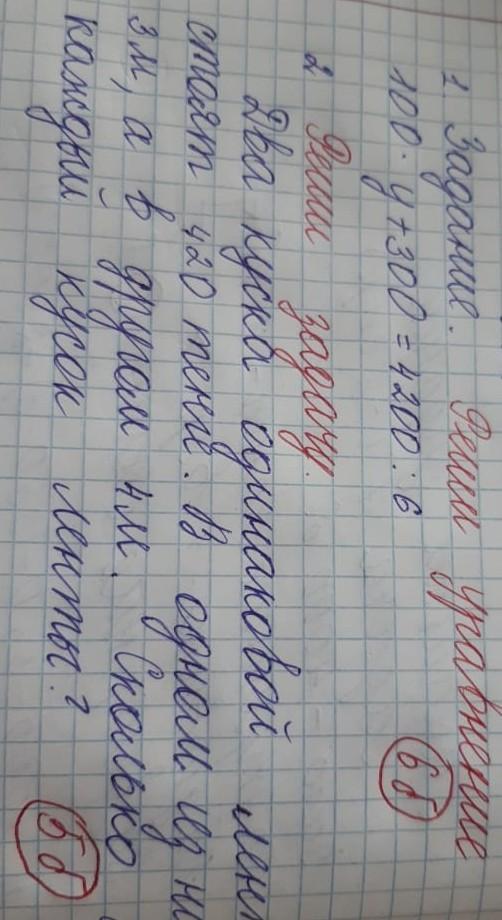 1. Задание. Реши уравнение
100 · у + 300 = 4200 : 6
6 б
2 Реши задачу.
Два куска одинаковой лен
стоят 420 тенге. В одном из
3м, а в другом 4м. Сколько
каждый кусок ленты?
5 б